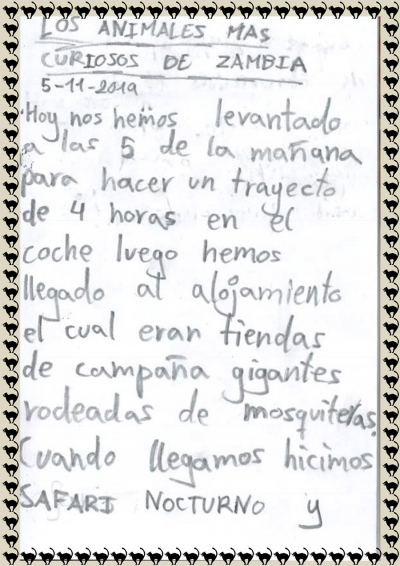 LOS ANIMALES MAS
CURIOSOS DE ZAMBIA
5-11-2019
Hoy nos hemos levantado
a las 5 de la mañana
para hacer un trayecto
de 4 horas en el
coche luego hemos
llegado al alojamiento
el cual eran tiendas
de campaña gigantes
rodeadas de mosquiteras.
Cuando llegamos hicimos
SAFARI NOCTURNO y